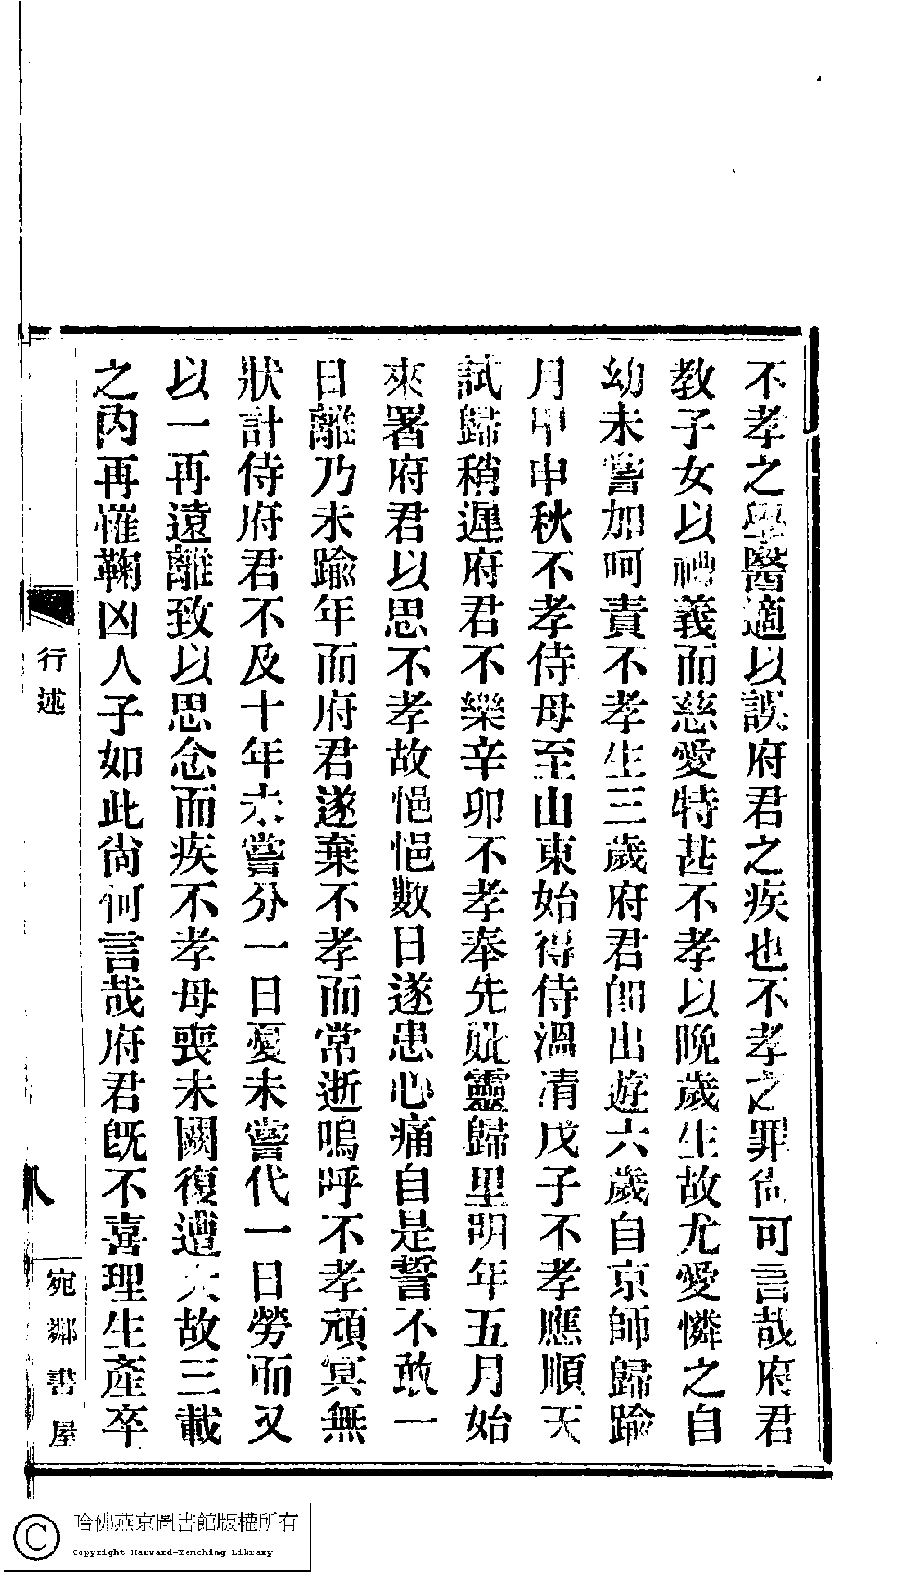 不孝之學醫適以誤府君之疾也不孝之罪尙可言哉府君
教子女以禮義而慈愛特甚不孝以晚歲生故尤愛憐之自
幼未嘗加呵責不孝生三歲府君卽出遊六歲自京師歸踰
月甲申秋不孝侍母至山東始得侍溫凊戊子不孝應順天
試歸稍遲府君不樂辛卯不孝奉先妣靈歸里明年五月始
來署府君以思不孝故悒悒數日遂患心痛自是誓不敢一
日離乃未踰年而府君遂棄不孝而常逝嗚呼不孝頑冥無
狀計侍府君不及十年未嘗分一日憂未嘗代一日勞而又
以一再遠離致以思念而疾不孝母喪未闋復遭大故三載
之內再罹鞠凶人子如此尙何言哉府君旣不喜理生產卒
行述
八
宛鄰書屋
哈佛燕京圖書館版權所有
Copyright Harvard-Yenching Library